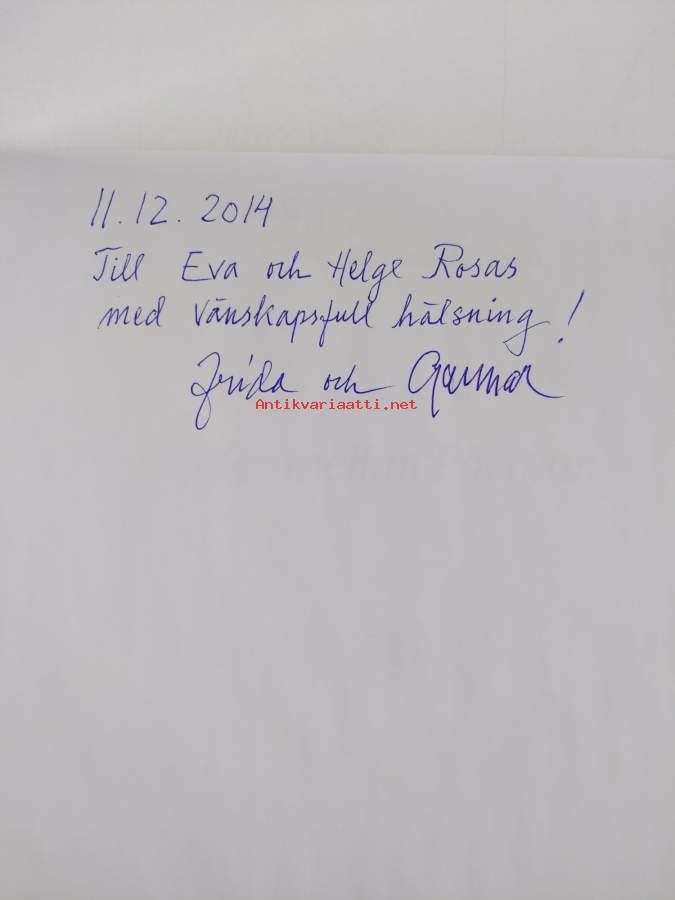 11.12.2014
Till Eva och Helge Rosas
med vänskapsfull hälsning!
Frida och Gunnar
Antikvariaatti.net